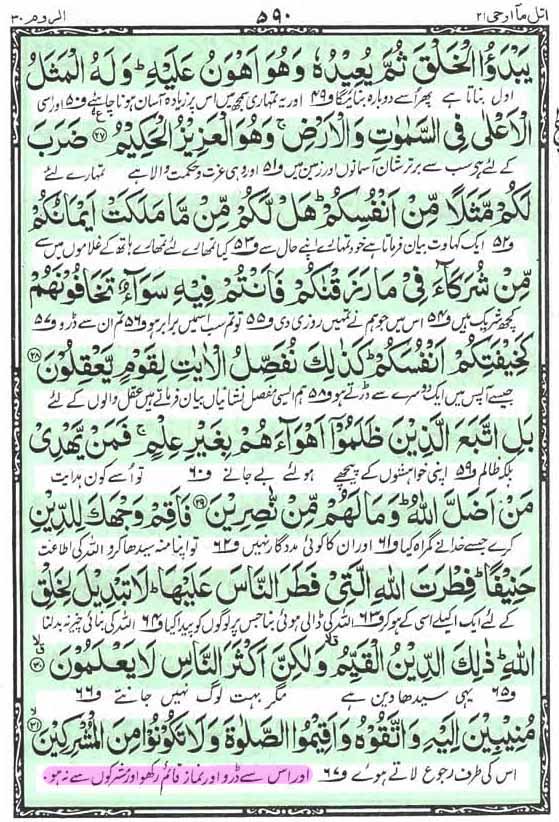 اتل مآ اوحی ٢١ ۵۹۰ الروم ٣٠
يَبْدَؤُا الْخَلْقَ ثُمَّ يُعِيْدُهٗ وَهُوَ اَهْوَنُ عَلَيْهِ ؕ وَلَهُ الْمَثَلُ
اول بناتا ہے پھر اُسے دوبارہ بنائیگا و۴۹ اور یہ تمہاری سمجھ میں اس پر زیادہ آسان ہونا چاہئے و۵۰ اور اسی
الْاَعْلٰى فِى السَّمٰوٰتِ وَالْاَرْضِ ۚ وَهُوَ الْعَزِيْزُ الْحَكِيْمُ ﴿۲۷﴾ ضَرَبَ
کے لئے ہے سب سے برتر شان آسمانوں اور زمین میں و۵۱ اور وہی عزت و حکمت والا ہے تمہارے لئے
لَكُمْ مَّثَلًا مِّنْ اَنْفُسِكُمْ ؕ هَلْ لَّكُمْ مِّنْ مَّا مَلَكَتْ اَيْمَانُكُمْ
و۵۲ ایک کہاوت بیان فرماتا ہے خود تمہارے اپنے حال سے و۵۳ کیا تمہارے لئے تمہارے ہاتھ کے غلاموں میں سے
مِّنْ شُرَكَآءَ فِيْ مَا رَزَقْنٰكُمْ فَاَنْتُمْ فِيْهِ سَوَآءٌ تَخَافُوْنَهُمْ
کچھ شریک ہیں و۵۴ اس میں جو ہم نے تمہیں روزی دی و۵۵ تو تم سب اس میں برابر ہو و۵۶ تم ان سے ڈرو و۵۷
كَخِيْفَتِكُمْ اَنْفُسَكُمْ ؕ كَذٰلِكَ نُفَصِّلُ الْاٰيٰتِ لِقَوْمٍ يَّعْقِلُوْنَ ﴿۲۸﴾
جیسے آپس میں ایک دوسرے سے ڈرتے ہو و۵۸ ہم ایسی مفصل نشانیاں بیان فرماتے ہیں عقل والوں کے لئے
بَلِ اتَّبَعَ الَّذِيْنَ ظَلَمُوْۤا اَهْوَآءَهُمْ بِغَيْرِ عِلْمٍ ۚ فَمَنْ يَّهْدِيْ
بلکہ ظالم و۵۹ اپنی خواہشوں کے پیچھے ہولئے بے جانے و۶۰ تو اُسے کون ہدایت
مَنْ اَضَلَّ اللّٰهُ ؕ وَمَا لَهُمْ مِّنْ نّٰصِرِيْنَ ﴿۲۹﴾ فَاَقِمْ وَجْهَكَ لِلدِّيْنِ
کرے جسے خدا نے گمراہ کیا و۶۱ اور ان کا کوئی مددگار نہیں و۶۲ تو اپنا منہ سیدھا کرو اللہ کی اطاعت
حَنِيْفًا ؕ فِطْرَتَ اللّٰهِ الَّتِيْ فَطَرَ النَّاسَ عَلَيْهَا ؕ لَا تَبْدِيْلَ لِخَلْقِ
کے لئے ایک اکیلے اسی کے ہو کر و۶۳ اللہ کی ڈالی ہوئی بنا جس پر لوگوں کو پیدا کیا و۶۴ اللہ کی بنائی چیز نہ بدلنا
اللّٰهِ ؕ ذٰلِكَ الدِّيْنُ الْقَيِّمُ ۙ وَلٰكِنَّ اَكْثَرَ النَّاسِ لَا يَعْلَمُوْنَ ﴿۳۰﴾
و۶۵ یہی سیدھا دین ہے مگر بہت لوگ نہیں جانتے و۶۶
مُنِيْبِيْنَ اِلَيْهِ وَاتَّقُوْهُ وَاَقِيْمُوا الصَّلٰوةَ وَلَا تَكُوْنُوْا مِنَ الْمُشْرِكِيْنَ ﴿۳۱﴾
اس کی طرف رجوع لاتے ہوئے و۶۷ اور اس سے ڈرو اور نماز قائم رکھو اور مشرکوں سے نہ ہو